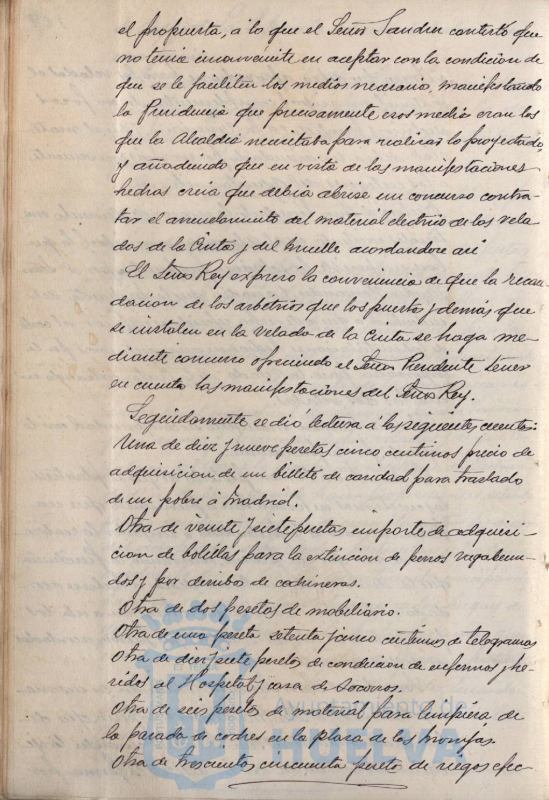 el propuesta, á lo que el Señor Sander contestó que
no tenia inconveniente en aceptar con la condicion de
que se le faciliten los medios necesarios, manifestando
la Presidencia que precisamente esos medios eran los
que la Alcaldia necesitaba para realizar lo proyectado,
y añadiendo que en vista de las manifestaciones
hechas creia que debia abrirse un concurso contra-
tar el arrendamiento del material electrico de las vela-
das de la Cinta y del Muelle acordandose asi
El Señor Rey expresó la conveniencia de que la recau-
dacion de los arbitrios que los puestos y demás que
se instalen en la velada de la Cinta se haga me-
diante concurso ofreciendo el Señor Presidente tener
en cuenta las manifestaciones del Señor Rey.
Seguidamente se dió lectura á las siguientes cuentas:
Una de diez y nueve pesetas cinco centimos precio de
adquisicion de un billete de caridad para traslado
de un pobre á Madrid.
Otra de veinte y siete pesetas importe de adquisi-
cion de bolillas para la extincion de perros vagabun-
dos y por derribo de cochineras.
Otra de dos pesetas de mobiliario.
Otra de una peseta setenta y cinco centimos de telegramas
Otra de diez y siete pesetas de condicion de enfermos y he-
ridos al Hospital y casa de Socorros.
Otra de seis pesetas de material para limpieza de
la parada de coches en la plaza de las Monjas.
Otra de trescientas cincuenta pesetas de riegos efec-
Ayuntamiento de
HUELVA